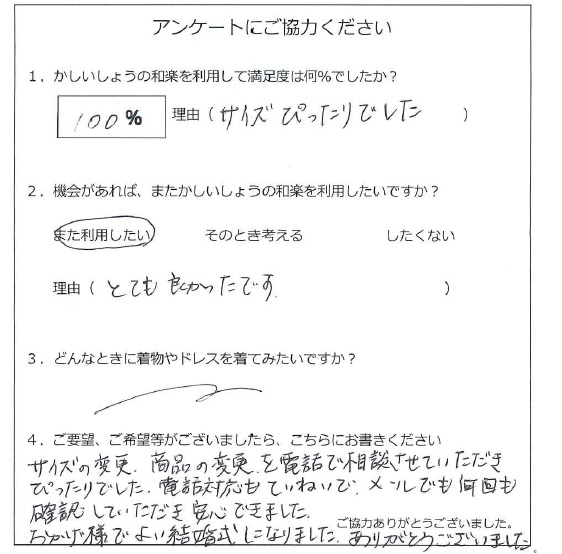 アンケートにご協力ください
1．かしいしょうの和楽を利用して満足度は何%でしたか？
100% 理由（サイズ ぴったりでした）
2．機会があれば、またかしいしょうの和楽を利用したいですか？
また利用したい そのとき考える したくない
理由（とても良かったです）
3．どんなときに着物やドレスを着てみたいですか？
4．ご要望、ご希望等がございましたら、こちらにお書きください
サイズの変更、商品の変更を電話で相談させていただき
ぴったりでした。電話対応もていねいで、メールでも何回も
確認していただき安心できました。
ご協力ありがとうございました。
おかげ様でよい結婚式になりました。ありがとうございました